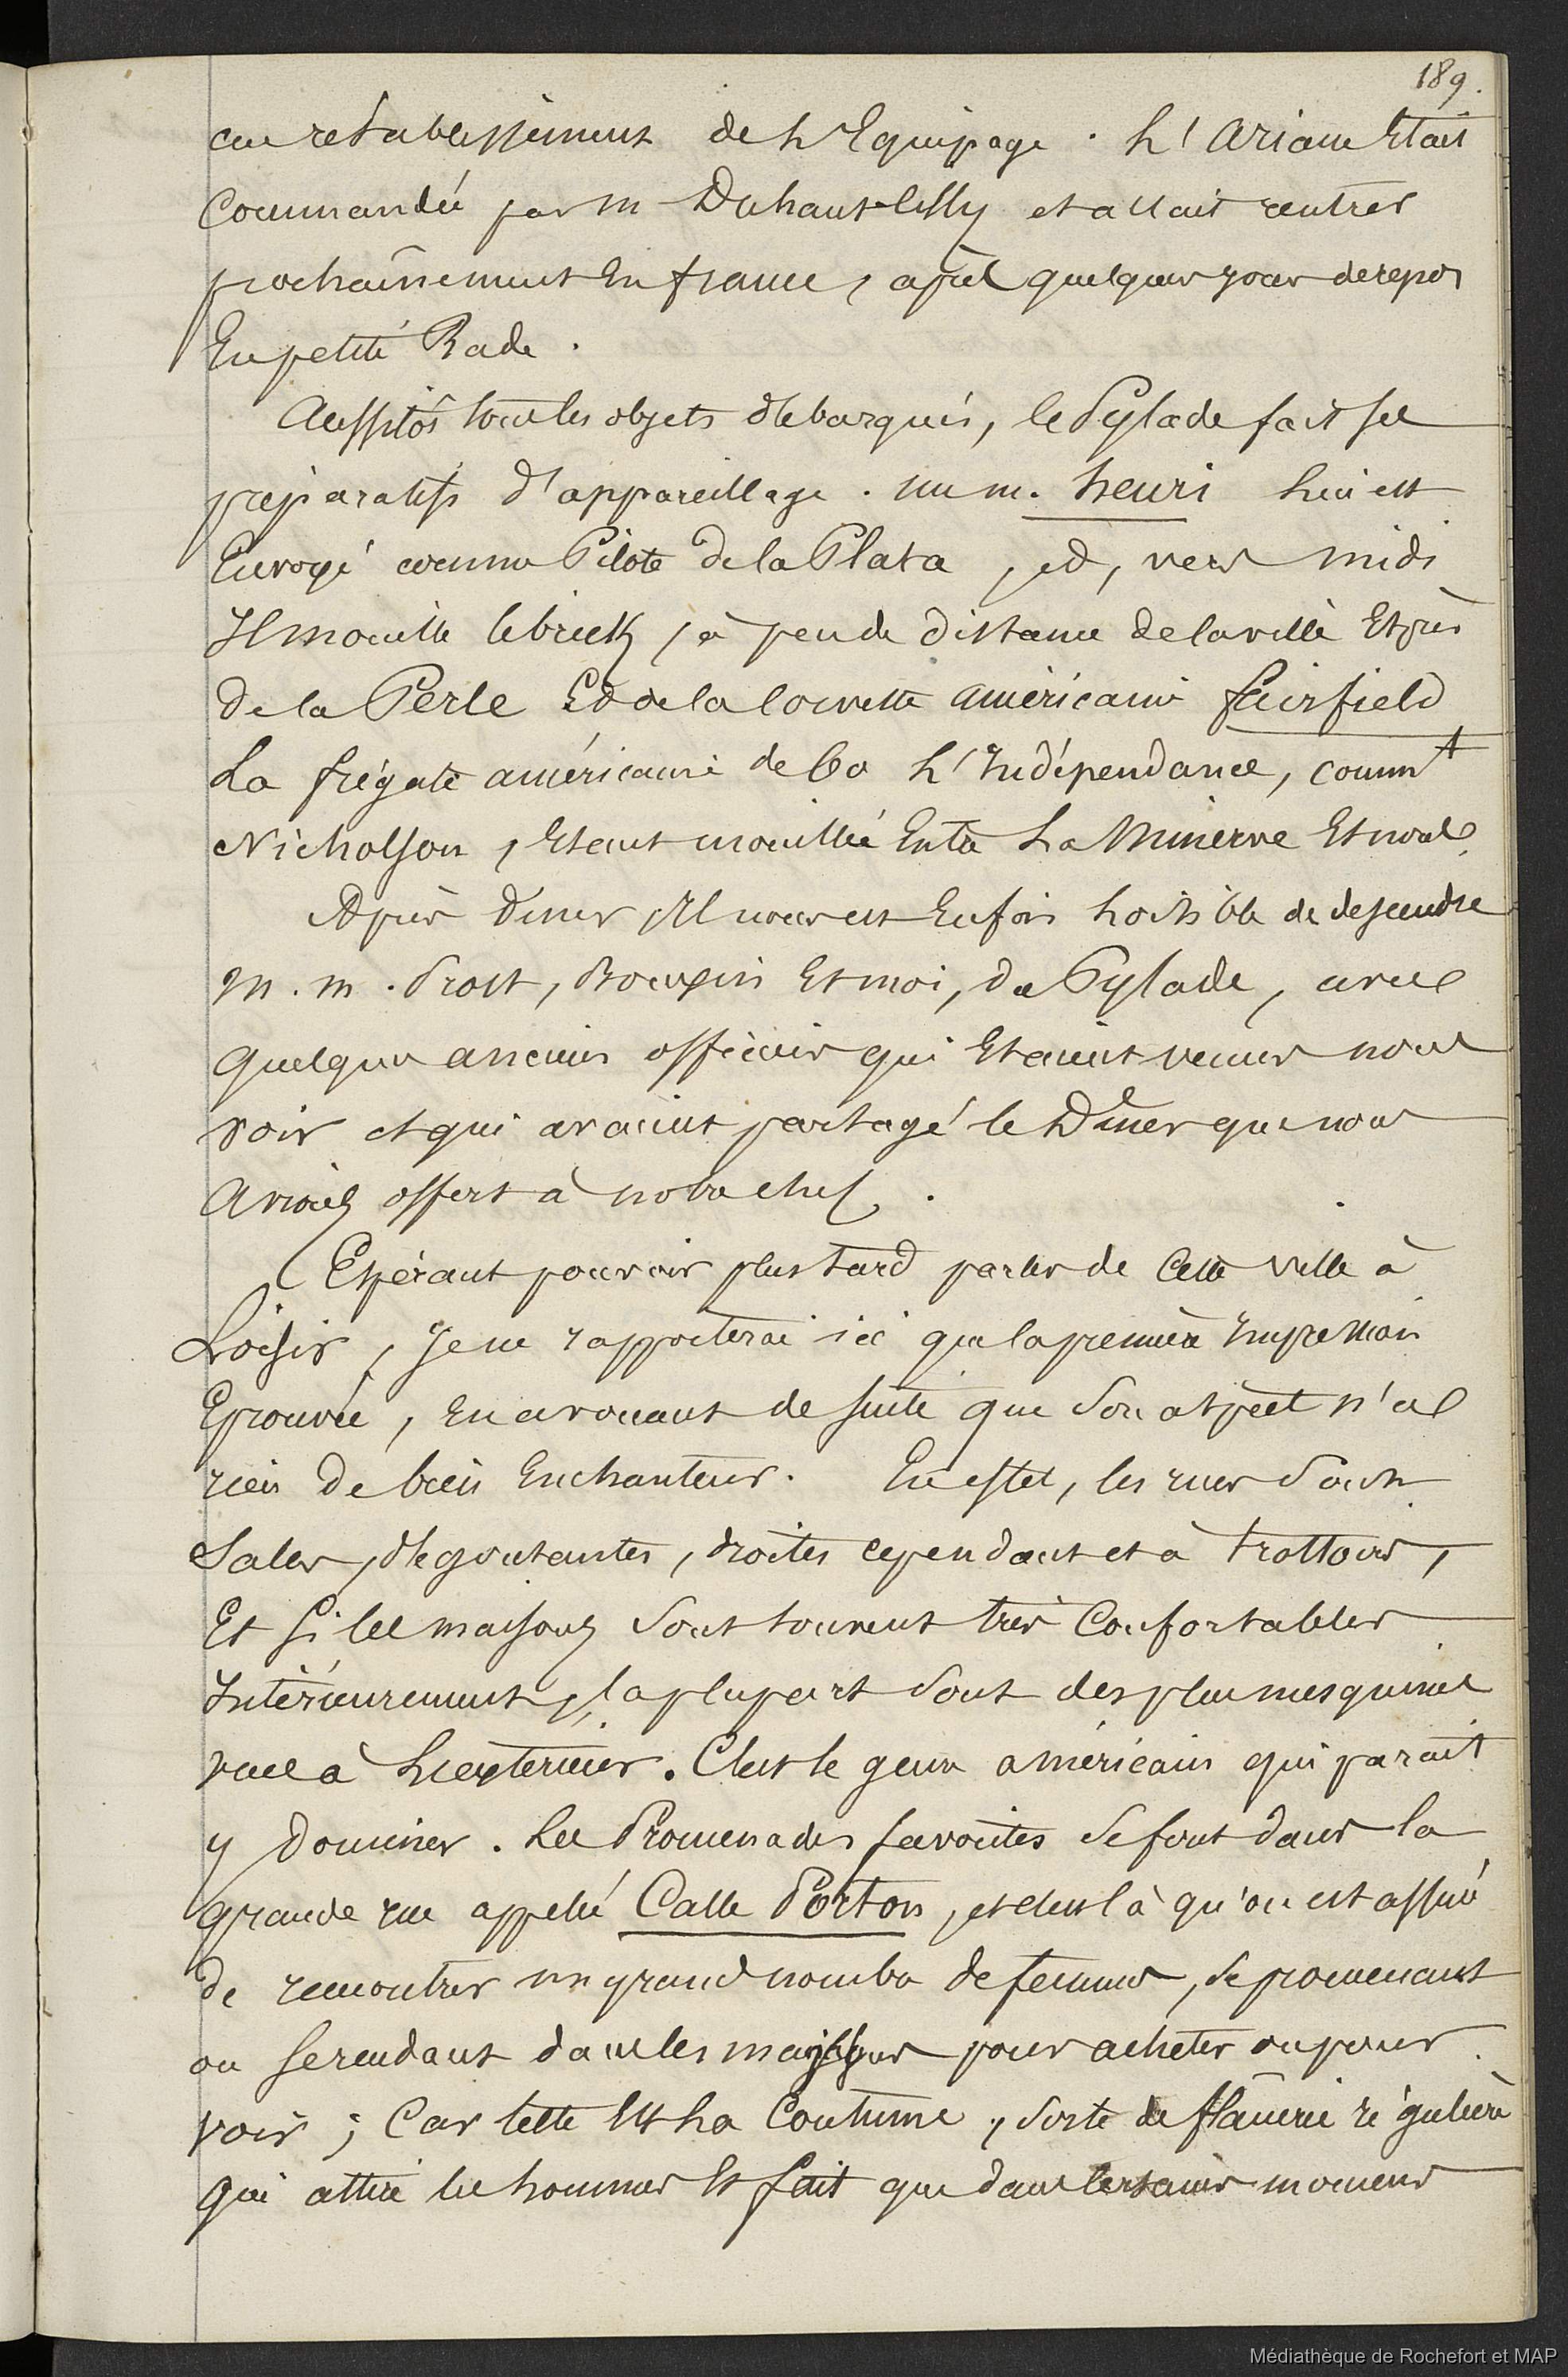 189.
au retablissement de l'Equipage. L'Ariane Etait
Commandée par m Duhautcilly et allait rentrer
prochainement En france, après quelques jours de repos
En petite Rade.
Aussitôt tous les objets débarqués, le Pylade fait ses
préparatifs d'appareillage. un m. henri lui est
Envoyé comme Pilote de la Plata, et, vers midi
Il mouille le brick, à peu de distance de la ville Et près
de la Perle Et de la Corvette américaine fairfield
La frégate américaine de 60 L'Indépendance, commt
Nicholson, Etant mouillée Entre La Minerve Et nous.
Après diner, Il nous est Enfin loisible de descendre
m. m. Prost, Et moi, du Pylade, avec
quelques anciens officiers qui Etaient venus nous
voir et qui avaient partagé le Dîner que nous
avions offert à notre chef.
Espérant pouvoir plus tard parler de Cette ville à
Loisir, Je ne rapporterai ici que la première Impression
Eprouvée, En avouant de suite que Son aspect n'a
rien de bien Enchanteur. En effet, les rues Sont
Sales, dégoutantes, droites cependant et à trottoirs,
Et Si les maisons Sont souvent très Confortables
Intérieurement, la plupart Sont des plus mesquines
vues à L'extérieur. C'est le genre américain qui parait
y Dominer. Les Promenades favorites Se font dans la
grande rue appelée Calle Porton, et c'est là qu'on est assuré
de rencontrer un grand nombre de femmes, Se promenant
ou Se rendant dans les magasins pour acheter ou pour
voir; Car telle Est La Coutume, Sorte de flânerie régulière
qui attire les hommes Et fait que dans certains moments
Médiathèque de Rochefort et MAP